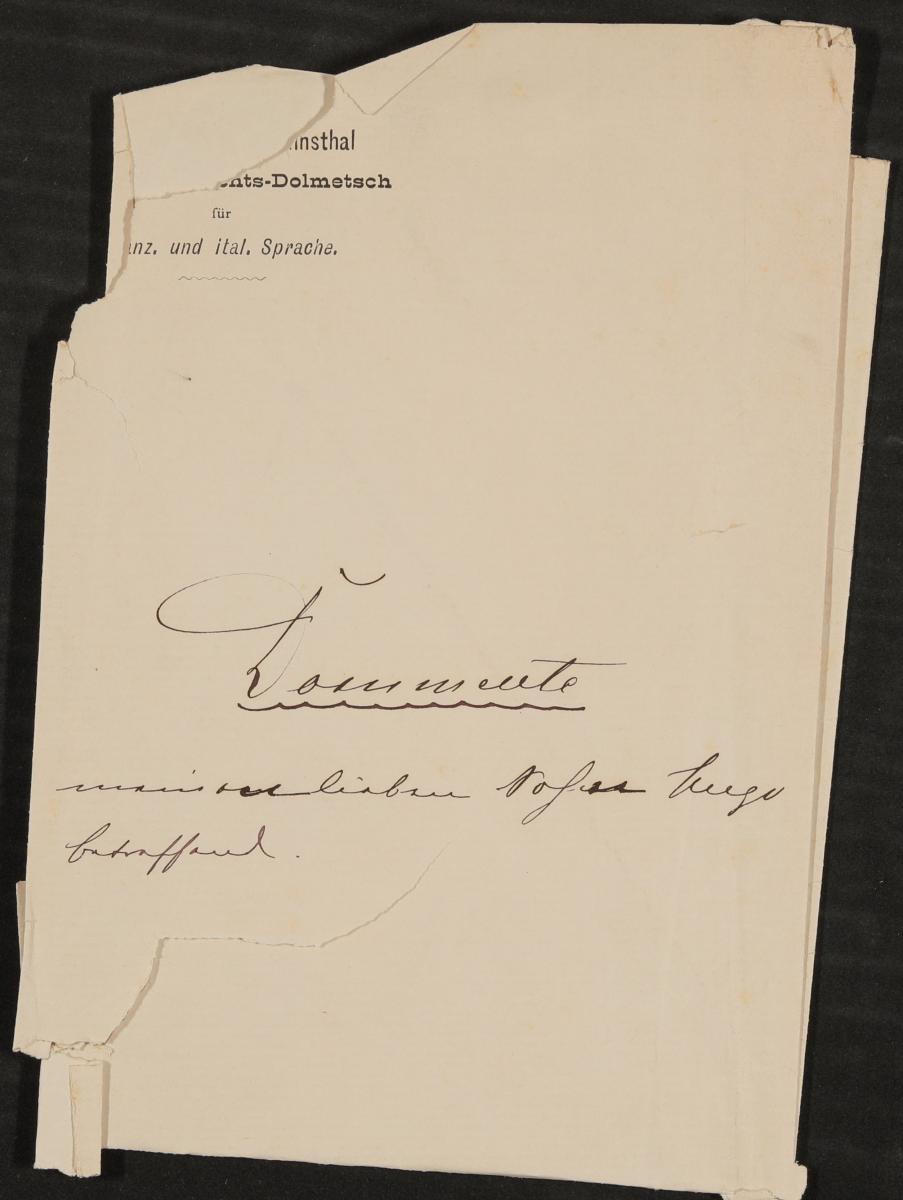 nnsthal
chts-Dolmetsch
für
anz. und ital. Sprache.
Documente
meinen lieben Sohn Hugo
betreffend.